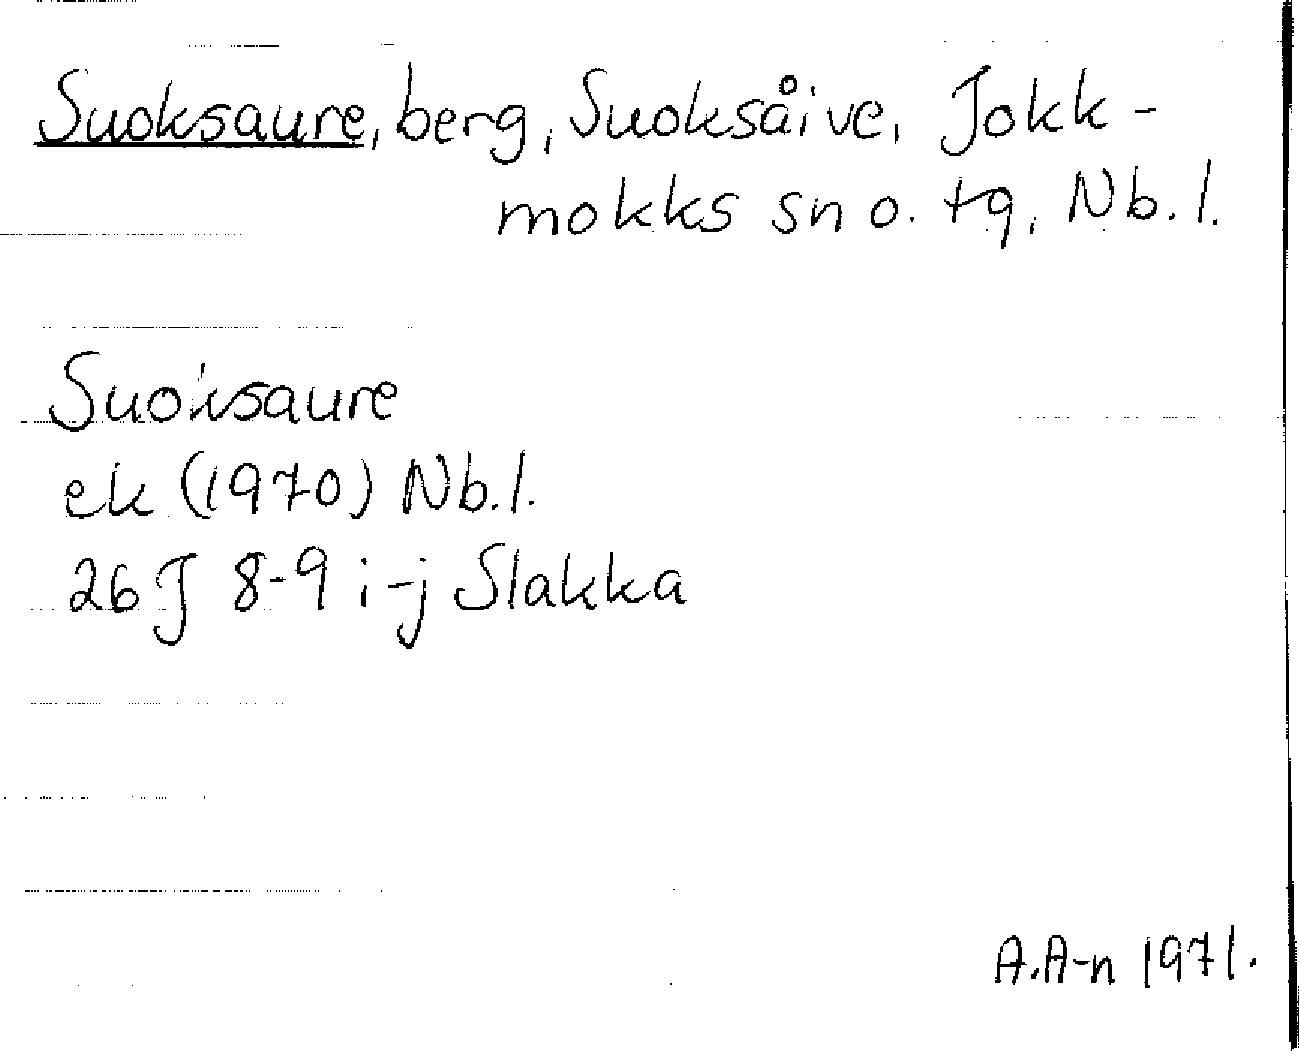 Suoksaure, berg, Suoksåive, Jokk-
mokks sn o. tg, Nb. l.
Suoksaure
ek (1970) Nb. l.
26 J 8-9 i-j Slakka
A.A-n 1971.